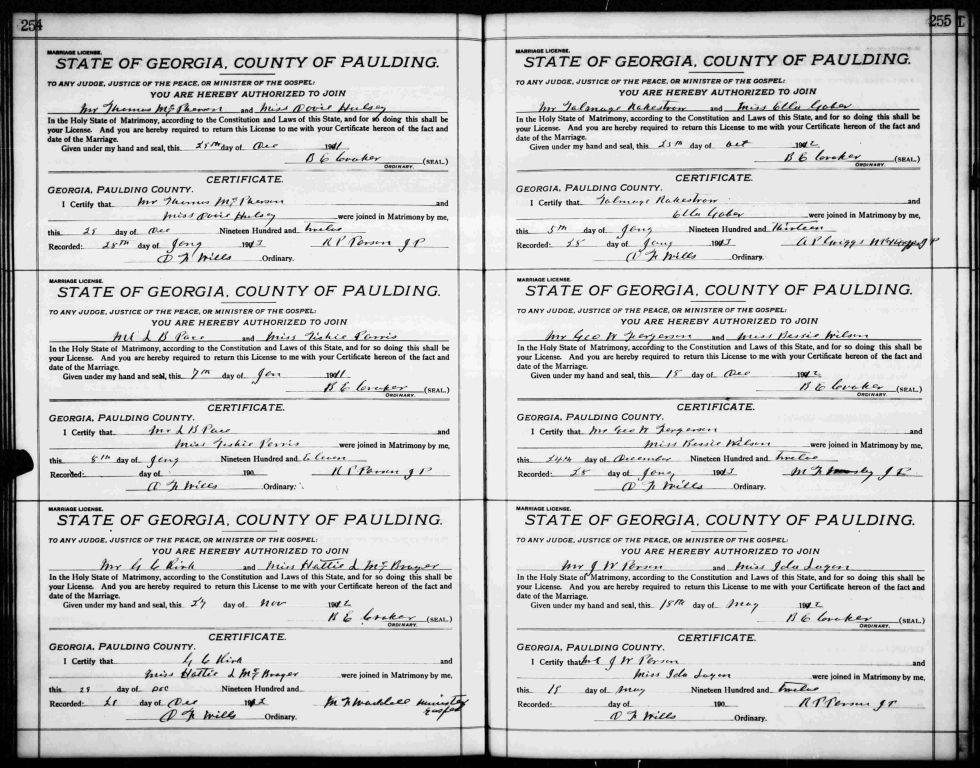 254
MARRIAGE LICENSE.
STATE OF GEORGIA, COUNTY OF PAULDING.
TO ANY JUDGE, JUSTICE OF THE PEACE, OR MINISTER OF THE GOSPEL:
YOU ARE HEREBY AUTHORIZED TO JOIN
Mr Thomas McPherson and Miss Dovie Hulsey
In the Holy State of Matrimony, according to the Constitution and Laws of this State, and for so doing this shall be
your License. And you are hereby required to return this License to me with your Certificate hereon of the fact and
date of the Marriage.
Given under my hand and seal, this 28th day of Dec 1911
B E Croker (SEAL.)
ORDINARY.
CERTIFICATE.
GEORGIA, PAULDING COUNTY.
I Certify that Mr Thomas McPherson and
Miss Dovie Hulsey were joined in Matrimony by me,
this 28 day of Dec Nineteen Hundred and twelve
Recorded: 28th day of Jany 1913 R P Person J P
O F Wills Ordinary.
MARRIAGE LICENSE.
STATE OF GEORGIA, COUNTY OF PAULDING.
TO ANY JUDGE, JUSTICE OF THE PEACE, OR MINISTER OF THE GOSPEL:
YOU ARE HEREBY AUTHORIZED TO JOIN
Mr L B Pace and Miss Perris
In the Holy State of Matrimony, according to the Constitution and Laws of this State, and for so doing this shall be
your License. And you are hereby required to return this License to me with your Certificate hereon of the fact and
date of the Marriage.
Given under my hand and seal, this 7th day of Jan 1911
B E Croker (SEAL.)
ORDINARY.
CERTIFICATE.
GEORGIA, PAULDING COUNTY.
I Certify that Mr L B Pace and
Miss Perris were joined in Matrimony by me,
this 8th day of Jany Nineteen Hundred and Eleven
Recorded: day of 190 R P Person J P
O F Wills Ordinary.
MARRIAGE LICENSE.
STATE OF GEORGIA, COUNTY OF PAULDING.
TO ANY JUDGE, JUSTICE OF THE PEACE, OR MINISTER OF THE GOSPEL:
YOU ARE HEREBY AUTHORIZED TO JOIN
Mr G C Kirk and Miss Hattie L McBrayer
In the Holy State of Matrimony, according to the Constitution and Laws of this State, and for so doing this shall be
your License. And you are hereby required to return this License to me with your Certificate hereon of the fact and
date of the Marriage.
Given under my hand and seal, this 27 day of Nov 1912
B E Croker (SEAL.)
ORDINARY.
CERTIFICATE.
GEORGIA, PAULDING COUNTY.
I Certify that G C Kirk and
Miss Hattie L McBrayer were joined in Matrimony by me,
this 28 day of Dec Nineteen Hundred and
Recorded: 28 day of Dec 1912 M F Waddell minister
Gospel
O F Wills Ordinary.
255
MARRIAGE LICENSE.
STATE OF GEORGIA, COUNTY OF PAULDING.
TO ANY JUDGE, JUSTICE OF THE PEACE, OR MINISTER OF THE GOSPEL:
YOU ARE HEREBY AUTHORIZED TO JOIN
Mr Talmage Rakestrow and Miss Ella Gober
In the Holy State of Matrimony, according to the Constitution and Laws of this State, and for so doing this shall be
your License. And you are hereby required to return this License to me with your Certificate hereon of the fact and
date of the Marriage.
Given under my hand and seal, this 25th day of Oct 1912
B E Croker (SEAL.)
ORDINARY.
CERTIFICATE.
GEORGIA, PAULDING COUNTY.
I Certify that Talmage Rakestrow and
Ella Gober were joined in Matrimony by me,
this 5th day of Jany Nineteen Hundred and Thirteen
Recorded: 28 day of Jany 1913 A P Griggs J P
O F Wills Ordinary.
MARRIAGE LICENSE.
STATE OF GEORGIA, COUNTY OF PAULDING.
TO ANY JUDGE, JUSTICE OF THE PEACE, OR MINISTER OF THE GOSPEL:
YOU ARE HEREBY AUTHORIZED TO JOIN
Mr Geo W Fergerson and Miss Bessie Wilson
In the Holy State of Matrimony, according to the Constitution and Laws of this State, and for so doing this shall be
your License. And you are hereby required to return this License to me with your Certificate hereon of the fact and
date of the Marriage.
Given under my hand and seal, this 18 day of Dec 1912
B E Croker (SEAL.)
ORDINARY.
CERTIFICATE.
GEORGIA, PAULDING COUNTY.
I Certify that Mr Geo W Fergerson and
Miss Bessie Wilson were joined in Matrimony by me,
this 24th day of December Nineteen Hundred and Twelve
Recorded: 28 day of Jany 1913 M F J P
O F Wills Ordinary.
MARRIAGE LICENSE.
STATE OF GEORGIA, COUNTY OF PAULDING.
TO ANY JUDGE, JUSTICE OF THE PEACE, OR MINISTER OF THE GOSPEL:
YOU ARE HEREBY AUTHORIZED TO JOIN
Mr J W Person and Miss Ida Logen
In the Holy State of Matrimony, according to the Constitution and Laws of this State, and for so doing this shall be
your License. And you are hereby required to return this License to me with your Certificate hereon of the fact and
date of the Marriage.
Given under my hand and seal, this 18th day of May 1912
B E Croker (SEAL.)
ORDINARY.
CERTIFICATE.
GEORGIA, PAULDING COUNTY.
I Certify that Mr J W Person and
Miss Ida Logen were joined in Matrimony by me,
this 18 day of May Nineteen Hundred and twelve
Recorded: day of 190 R P Person J P
O F Wills Ordinary.